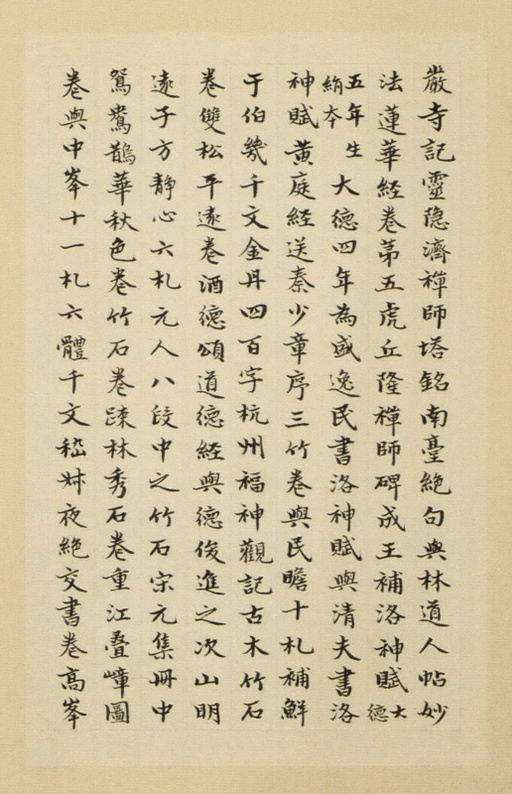 巖寺記靈隐濟禪師塔銘南臺絶句與林道人帖妙
法蓮華經卷苐五虎丘隆禪師碑成王補洛神賦大德
五年生絹夲大德四年為盛逸民書洛神賦與清夫書洛
神賦黄庭經送秦少章序三竹卷與民瞻十札補鮮
于伯幾千文金丹四百字杭州福神觀記古木竹石
卷雙松平逺卷酒德頌道德經與德俊進之次山明
逺子方静心六札元人八段中之竹石宋元集冊中
鴛鴦鵲華秋色卷竹石卷踈林秀石卷重江叠嶂圖
卷與中峯十一札六體千文嵇妹夜絶交書卷高峯